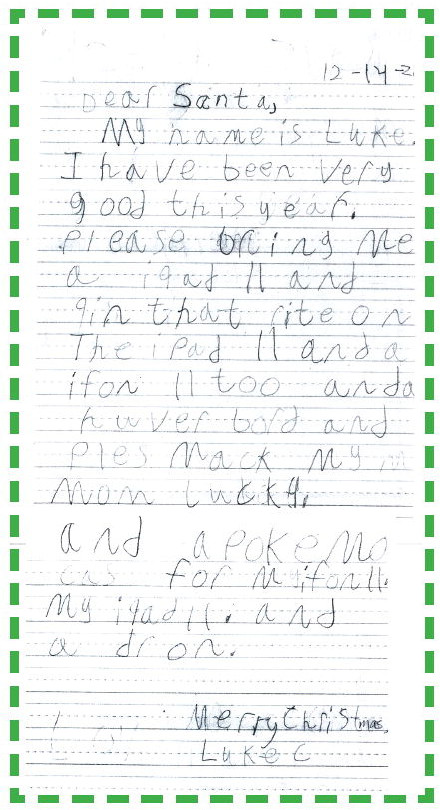 12-14-2
Dear Santa,
My name is Luke.
I have been very
good this year.
please bring me
a ipad 11 and
pin that rite on
The ipad 11 and a
ifon 11 too anda
huver bord and
ples Mack My m
Mom lucky.
and a Pokemo
cas for M ifon11.
My ipad11. and
a dron.
Merry Christmas,
Luke C